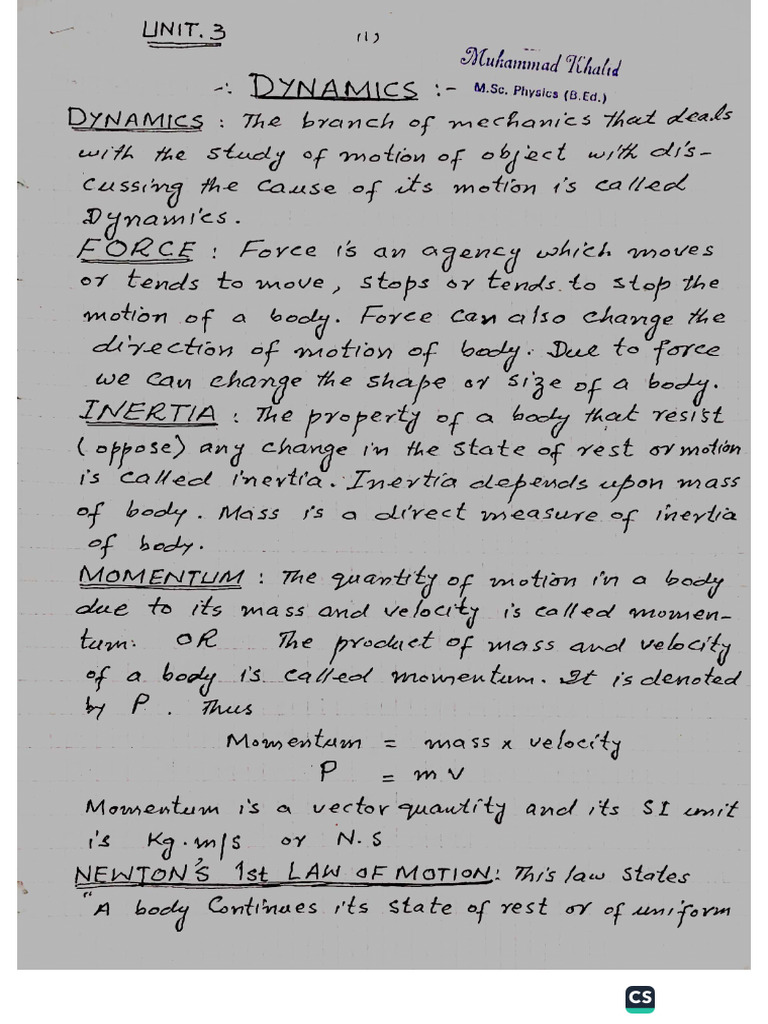 UNIT. 3
(1)
Muhammad Khalid
M.Sc. Physics (B.Ed.)
-: DYNAMICS :-
DYNAMICS : The branch of mechanics that deals
with the study of motion of object with dis-
cussing the cause of its motion is called
Dynamics.
FORCE : Force is an agency which moves
or tends to move, stops or tends to stop the
motion of a body. Force can also change the
direction of motion of body. Due to force
we can change the shape or size of a body.
INERTIA : The property of a body that resist
(oppose) any change in the state of rest or motion
is called inertia. Inertia depends upon mass
of body. Mass is a direct measure of inertia
of body.
MOMENTUM : The quantity of motion in a body
due to its mass and velocity is called momen-
tum. OR The product of mass and velocity
of a body is called momentum. It is denoted
by P. Thus
Momentum = mass x velocity
P = mv
Momentum is a vector quantity and its SI unit
is Kg.m/s or N.S
NEWTON'S 1st LAW OF MOTION: This law states
"A body Continues its state of rest or of uniform
CS